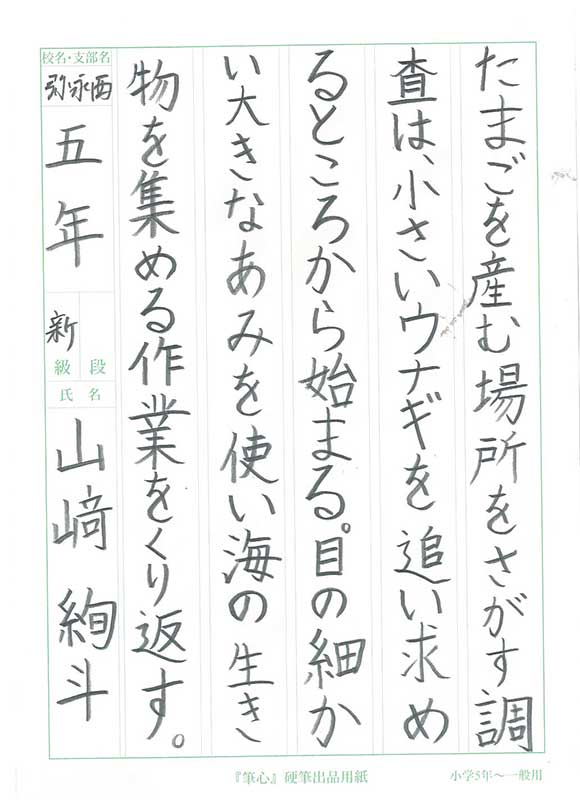 たまごを産む場所をさがす調
査は、小さいウナギを追い求め
るところから始まる。目の細か
い大きなあみを使い海の生き
物を集める作業をくり返す。
校名・支部名
弥永西
五年
新
級 段
氏名
山﨑 絢斗
『筆心』硬筆出品用紙
小学5年〜一般用